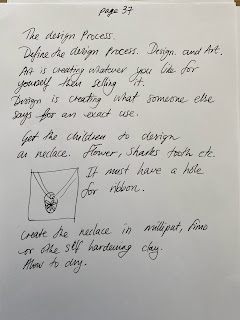 page 37
The design Process.
Define the design Process. Design and Art.
Art is creating whatever you like for
yourself then selling it.
Design is creating what someone else
says for an exact use.
Get the children to design
an neclace. flower, sharks tooth etc.
It must have a hole
for ribbon.
Create the neclace in milliput, Fimo
or othe self hardening clay.
Allow to dry.